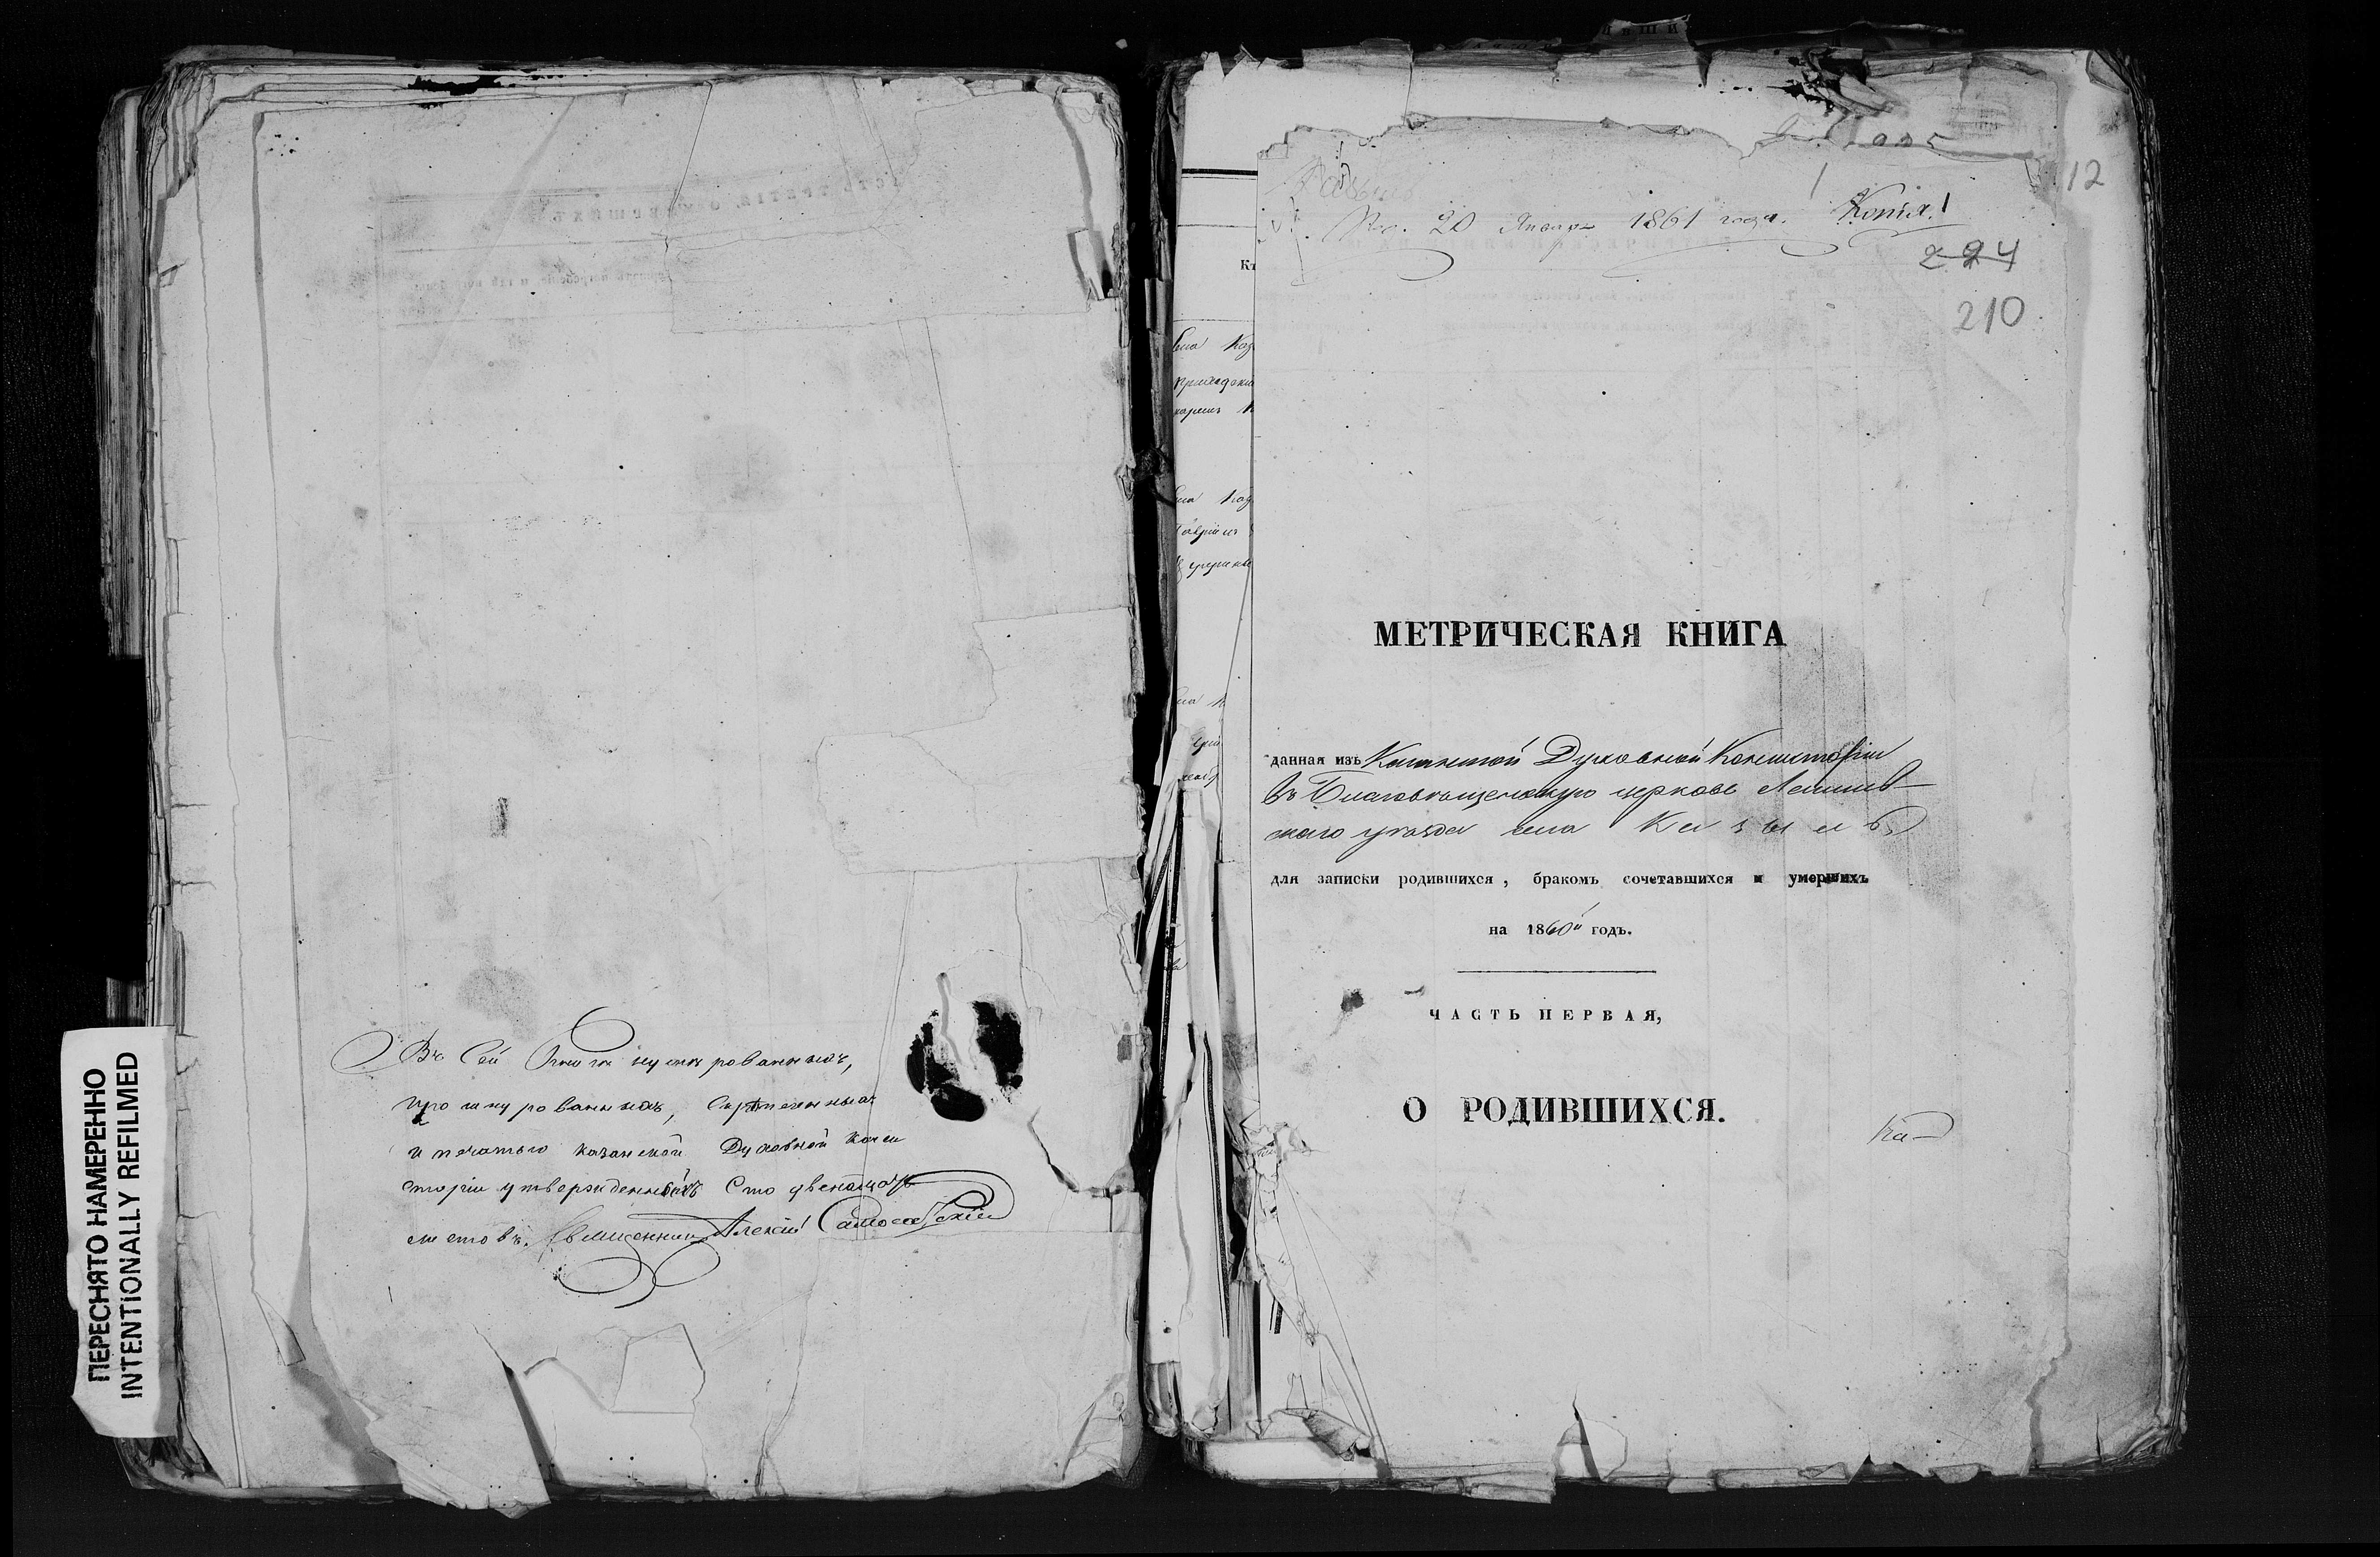 Въ сей книгѣ нумерованныхъ,
прошнурованныхъ, скрѣпленныхъ
и печатью казанской Духовной Конси
сторіи утвержденныхъ Сто двенатцать
листовъ. Священникъ Алексій
ПЕРЕСНЯТО НАМЕРЕННО
INTENTIONALLY REFILMED
12
20 Января 1861 года. Копія.
224
210
МЕТРИЧЕСКАЯ КНИГА
данная изъ Казанской Духовной Консисторіи
въ Благовѣщенскую церковь Лаишев-
скаго уѣзда села
для записки родившихся, бракомъ сочетавшихся и умершихъ
на 1860й годъ.
ЧАСТЬ ПЕРВАЯ,
О РОДИВШИХСЯ.
Ка-